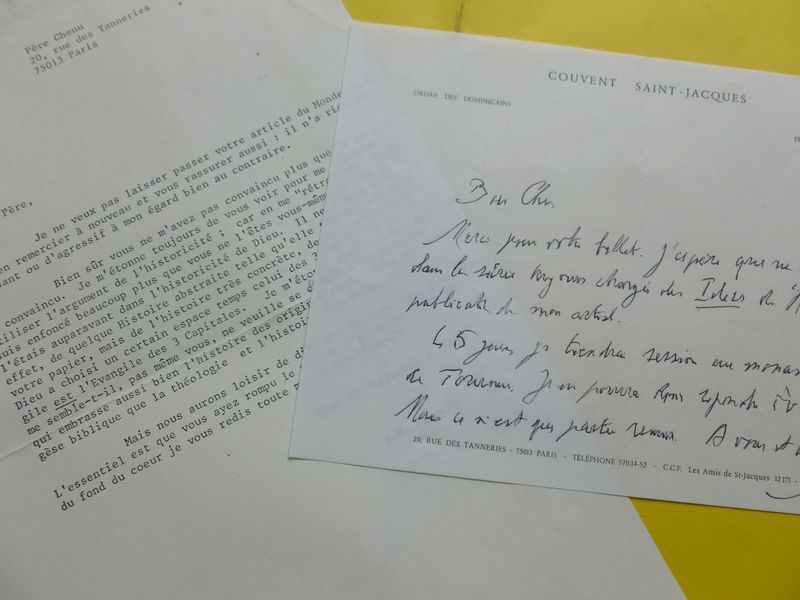 Père Chenu
20, rue des Tanneries
75013 Paris
Père,
Je ne veux pas laisser passer votre article du Monde
en remercier à nouveau et vous rassurer aussi : il n'a rie
ant ou d'agressif à mon égard bien au contraire.
Bien sûr vous ne m'avez pas convaincu plus que
convaincu. Je m'étonne toujours de vous voir pour me
tiliser l'argument de l'historicité ; car en me "rétra
suis enfoncé beaucoup plus que vous ne l'êtes vous-même
l'étais auparavant dans l'historicité de Dieu. Il ne
effet, de quelque Histoire abstraite telle qu'elle
votre papier, mais de l'histoire très concrète, de
Dieu a choisi un certain espace temps celui des 3
gile est l'Evangile des 3 Capitales. Je m'éto
me semble-t-il, pas même vous, ne veuille se
qui embrasse aussi bien l'histoire des origi
gèse biblique que la théologie et l'histoi
Mais nous aurons loisir de di
L'essentiel est que vous ayez rompu le
du fond du coeur je vous redis toute m
COUVENT SAINT-JACQUES
ORDRE DES DOMINICAINS
Merci pour votre billet. J'espère que
dans la toujours des
publication de mon
15 jours je session
de Je pourrai
Mais ce n'est que partie remise. A vous
20, RUE DES TANNERIES - 75013 PARIS - TÉLÉPHONE 570.14-52 - C.C.P. Les Amis de St-Jacques 12 171 -